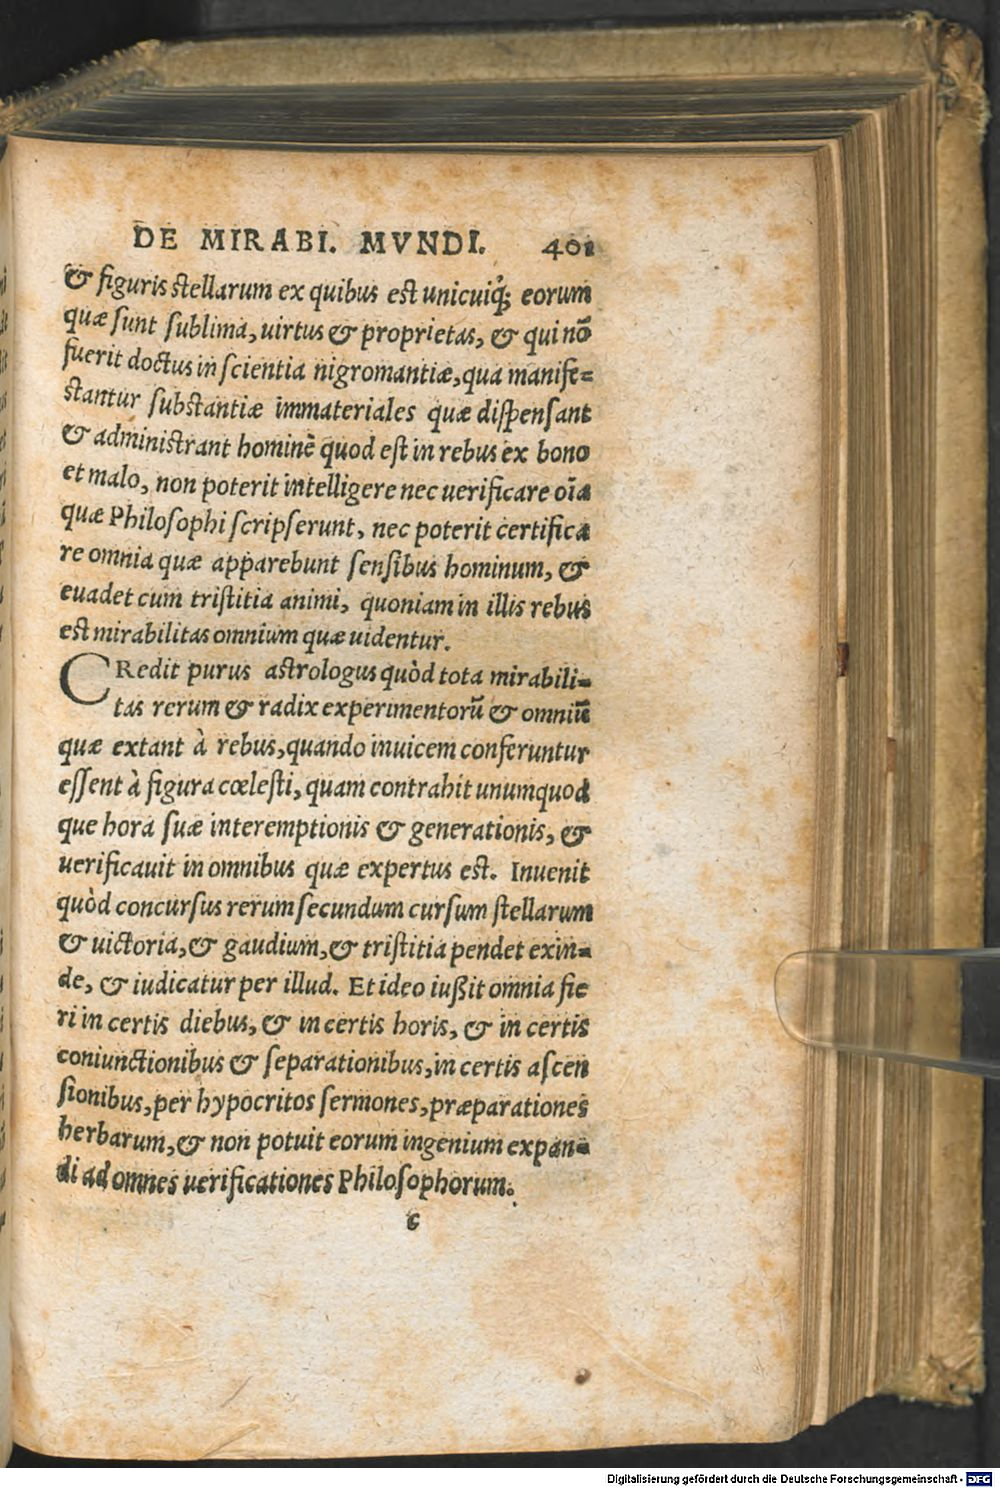 DE MIRABI. MVNDI. 401
& figuris stellarum ex quibus est unicuiq; eorum
quæ sunt sublima, uirtus & proprietas, & qui nō
fuerit doctus in scientia nigromantiæ, qua manife=
stantur substantiæ immateriales quæ dispensant
& administrant hominē quod est in rebus ex bono
et malo, non poterit intelligere nec uerificare oīa
quæ Philosophi scripserunt, nec poterit certifica
re omnia quæ apparebunt sensibus hominum, &
euadet cum tristitia animi, quoniam in illis rebus
est mirabilitas omnium quæ uidentur.
CRedit purus astrologus quòd tota mirabili=
tas rerum & radix experimentorū & omniū
quæ extant à rebus, quando inuicem conferuntur
essent à figura cœlesti, quam contrahit unumquod
que hora suæ interemptionis & generationis, &
uerificauit in omnibus quæ expertus est. Inuenit
quòd concursus rerum secundum cursum stellarum
& uictoria, & gaudium, & tristitia pendet exin=
de, & iudicatur per illud. Et ideo iußit omnia fie
ri in certis diebus, & in certis horis, & in certis
coniunctionibus & separationibus, in certis ascen
sionibus, per hypocritos sermones, præparationes
herbarum, & non potuit eorum ingenium expan=
di ad omnes uerificationes Philosophorum.
C
Digitalisierung gefördert durch die Deutsche Forschungsgemeinschaft - DFG